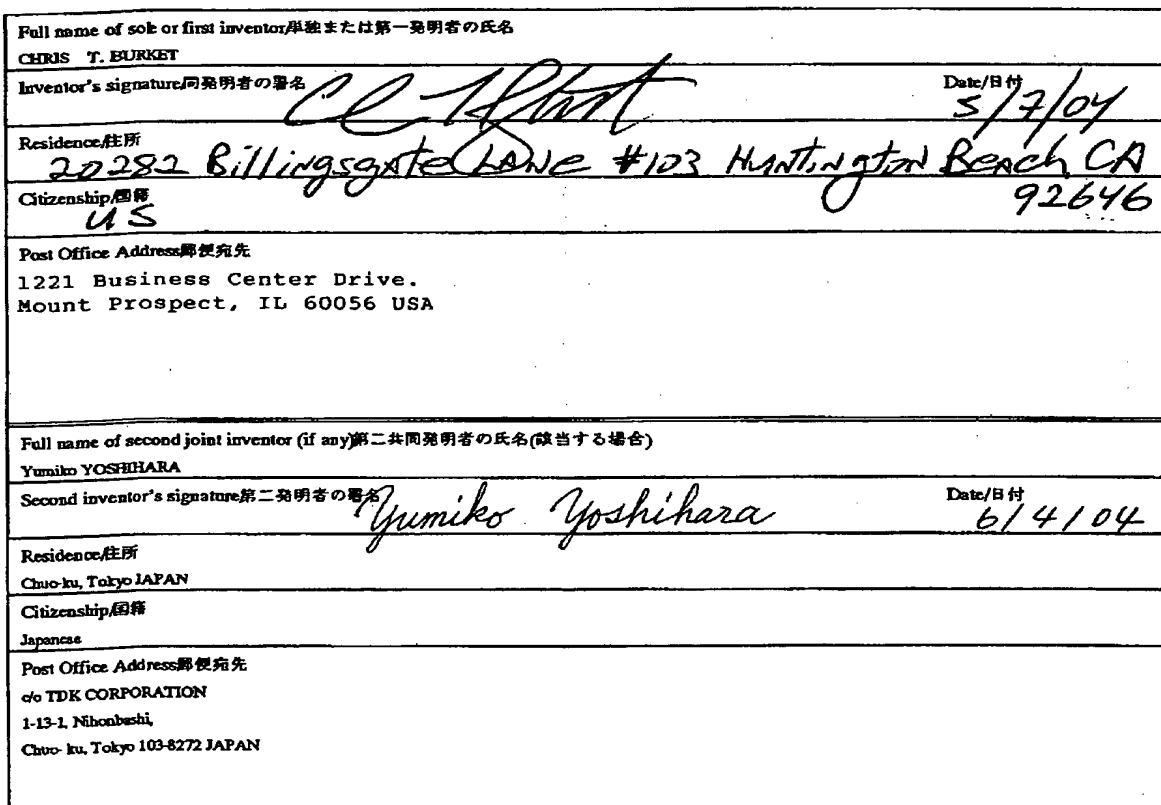 Full name of sole or first inventor/単独または第一発明者の氏名
CHRIS T. BURKET
Inventor's signature/同発明者の署名 Date/日付
5/7/04
Residence/住所
20282 Billingsgate LANE #103 Huntington Beach, CA
92646
Citizenship/国籍
US
Post Office Address/郵便宛先
1221 Business Center Drive.
Mount Prospect, IL 60056 USA
Full name of second joint inventor (if any)第二共同発明者の氏名(該当する場合)
Yumiko YOSHIHARA
Second inventor's signature第二発明者の署名 Yumiko Yoshihara Date/日付
6/4/04
Residence/住所
Chuo-ku, Tokyo JAPAN
Citizenship/国籍
Japanese
Post Office Address郵便宛先
c/o TDK CORPORATION
1-13-1, Nihonbashi,
Chuo-ku, Tokyo 103-8272 JAPAN